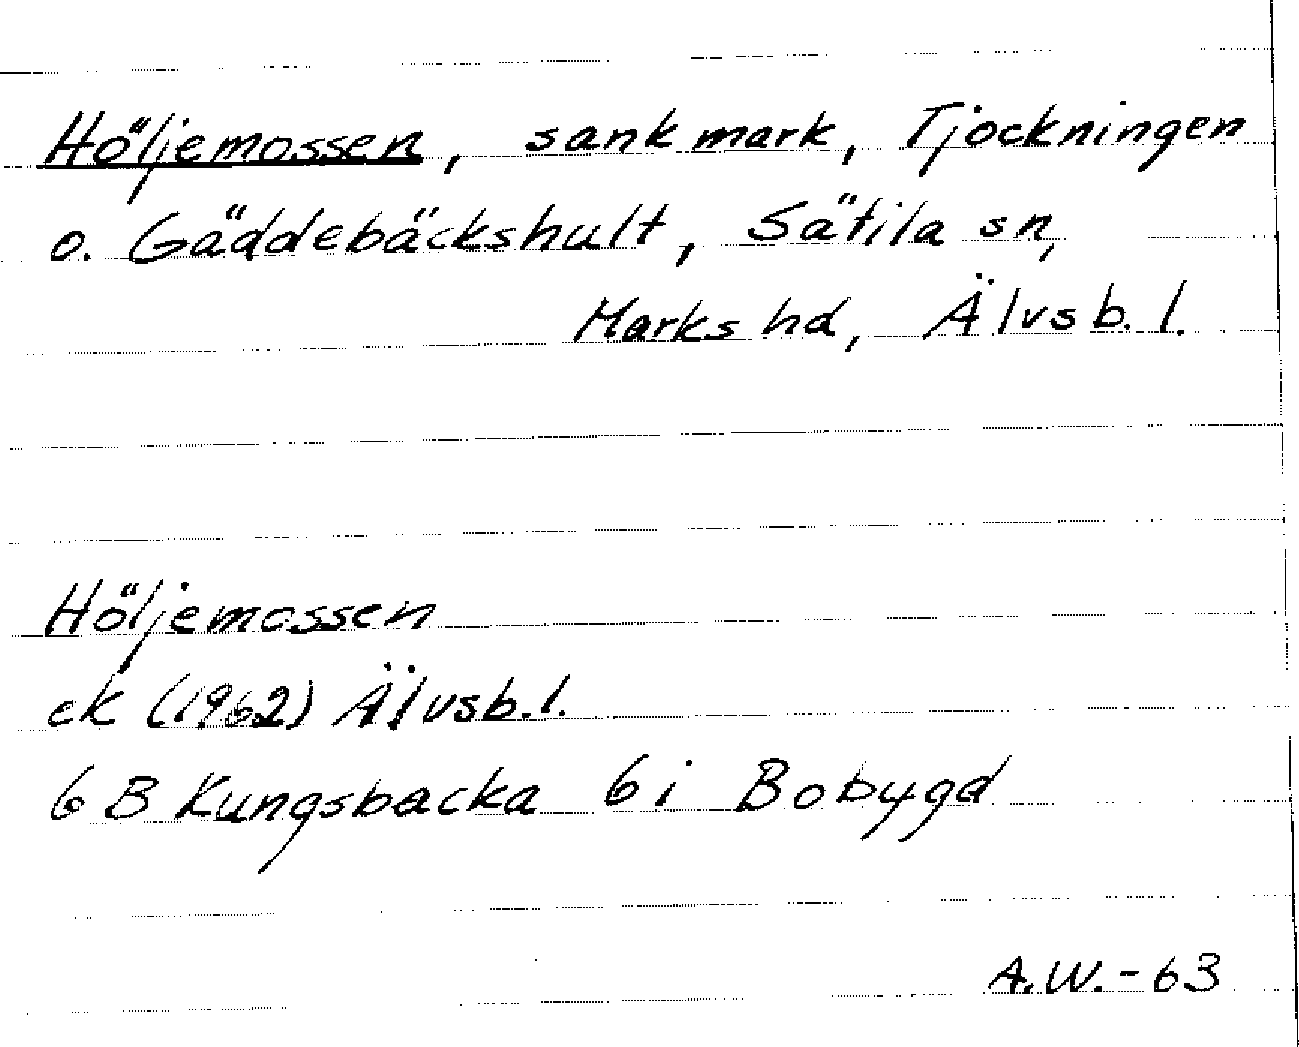 Höljemossen, sank mark, Tjockningen
o. Gäddebäckshult, Sätila sn,
Marks hd, Älvsb. l.
Höljemossen
ek (1962) Älvsb. l.
6 B Kungsbacka 6 i Bobygd
A.W.-63